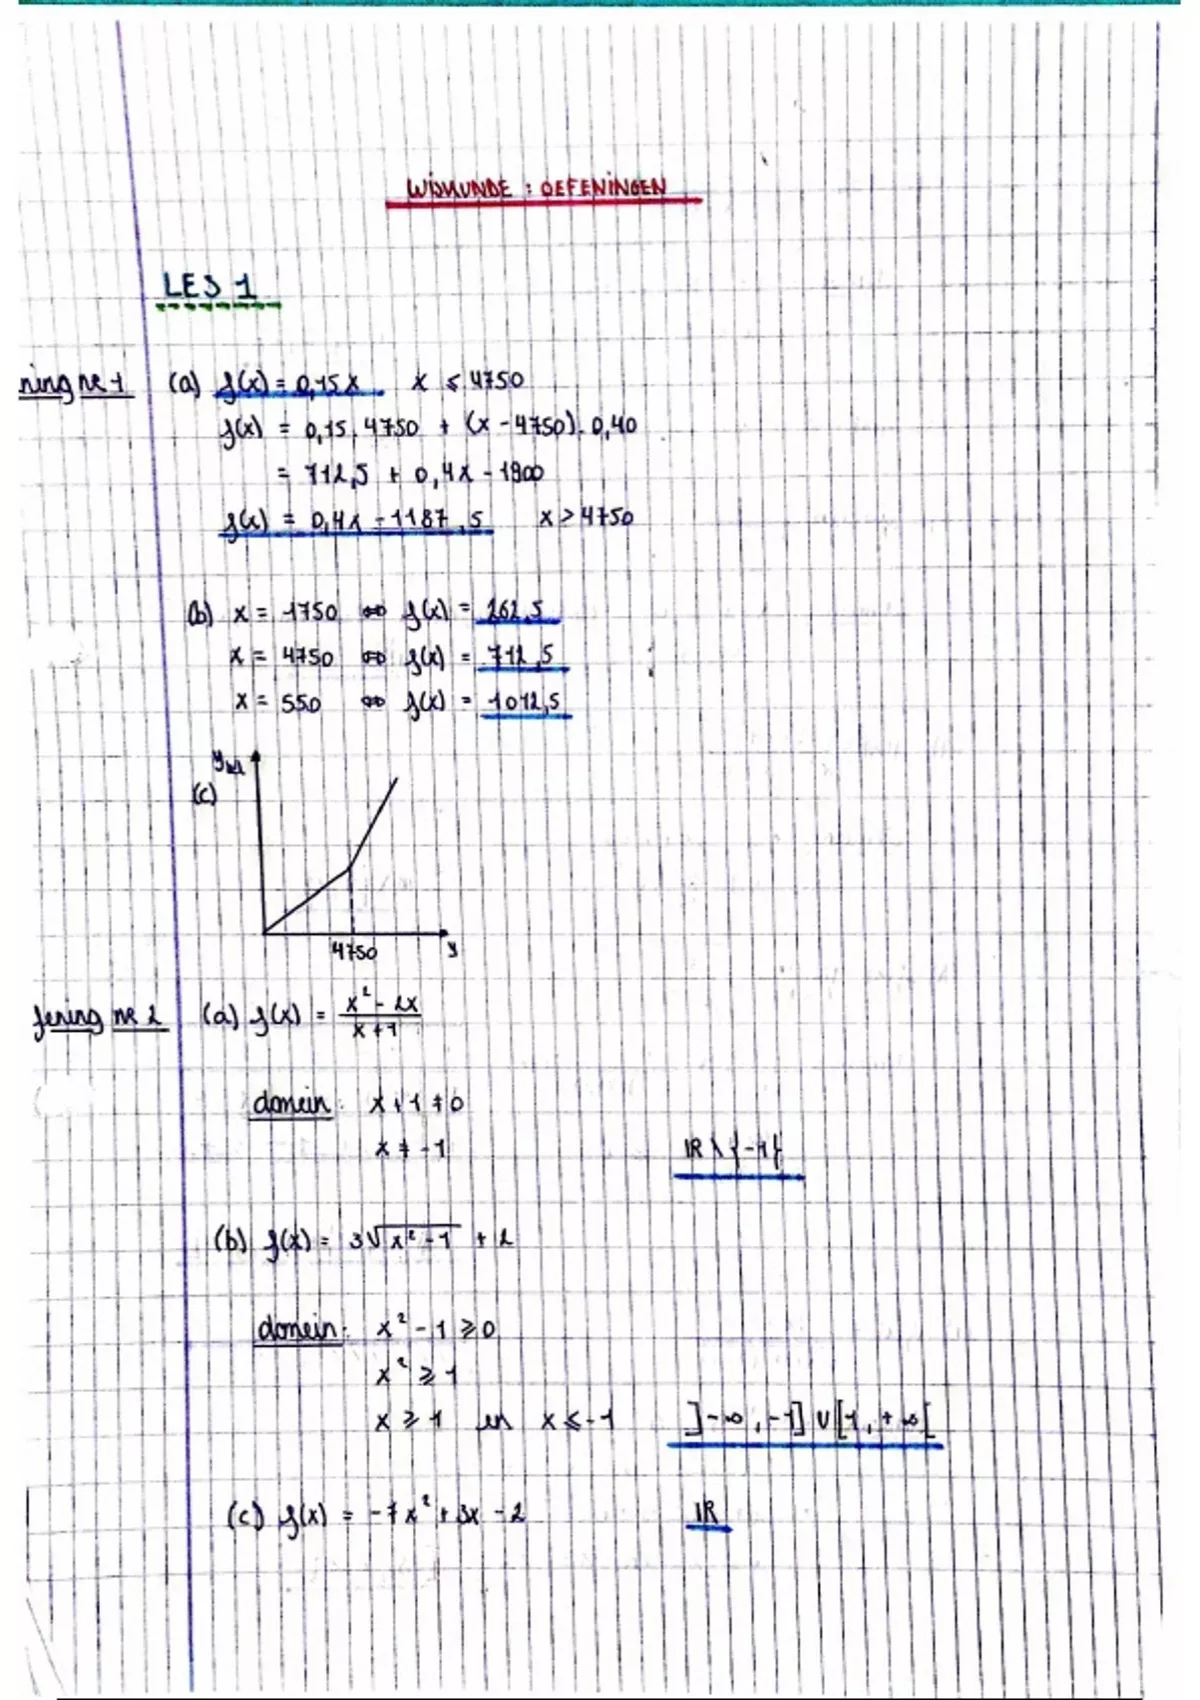 WISKUNDE : OEFENINGEN
LES 1
ning nr 1 (a) f(x) = 0,15x x ≤ 4750
f(x) = 0,15 . 4750 + (x - 4750) . 0,40
= 712,5 + 0,4x - 1900
f(x) = 0,4x - 1187,5 x > 4750
(b) x = 1750 ⇔ f(x) = 262,5
x = 4750 ⇔ f(x) = 712,5
x = 550 ⇔ f(x) = 1012,5
(c)
4750 y
fening nr 2 (a) f(x) = (x² - 2x)/(x + 1)
domein: x + 1 ≠ 0
x ≠ -1 IR \ {-1}
(b) f(x) = 3√(x² - 1) + 2
domein: x² - 1 ≥ 0
x² ≥ 1
x ≥ 1 en x ≤ -1 ]-∞, -1] ∪ [1, +∞[
(c) f(x) = -7x² + 3x - 2 IR